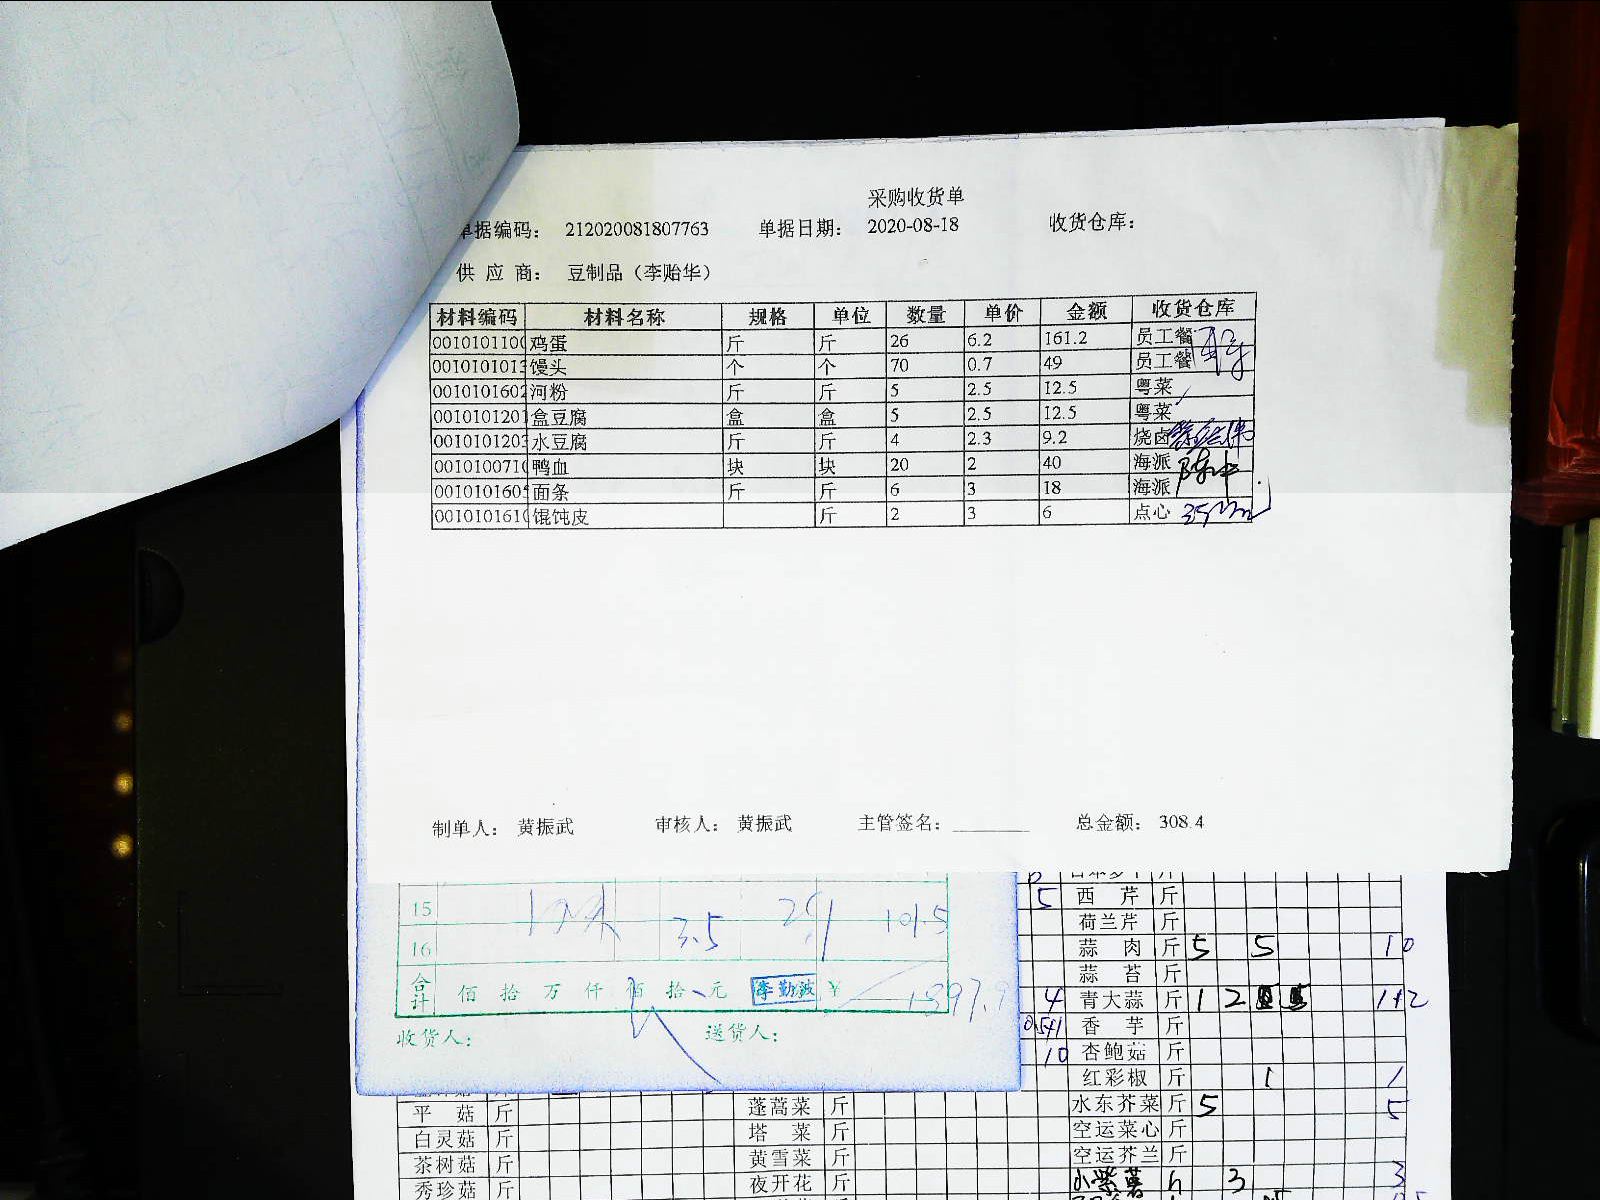 采购收货单
单据编码： 212020081807763 单据日期： 2020-08-18 收货仓库：
供 应 商： 豆制品（李贻华）
材料编码 材料名称 规格 单位 数量 单价 金额 收货仓库
0010101100 鸡蛋 斤 斤 26 6.2 161.2 员工餐
001010101 馒头 个 个 70 0.7 49 员工餐
0010101602 河粉 斤 斤 5 2.5 12.5 粤菜
0010101201 盒豆腐 盒 盒 5 2.5 12.5 粤菜
0010101203 水豆腐 斤 斤 4 2.3 9.2 烧卤
001010071 鸭血 块 块 20 2 40 海派
001010160 面条 斤 斤 6 3 18 海派
001010161 馄饨皮 斤 2 3 6 点心
制单人： 黄振武 审核人： 黄振武 主管签名： 总金额： 308.4
15
16 3.5 29 101.5
合计 佰 拾 万 仟 佰 拾 元 李勤波 ￥
收货人： 送货人：
5 西 芹 斤
荷兰芹 斤
蒜 肉 斤 5 5 10
蒜 苔 斤
4 青大蒜 斤 1 2 1+2
香 芋 斤
10 杏鲍菇 斤
红彩椒 斤 1 1
平 菇 斤 蓬蒿菜 斤 水东芥菜 斤 5 5
白灵菇 斤 塔 菜 斤 空运菜心 斤
茶树菇 斤 黄雪菜 斤 空运芥兰 斤
秀珍菇 斤 夜开花 斤 小紫薯 3 3